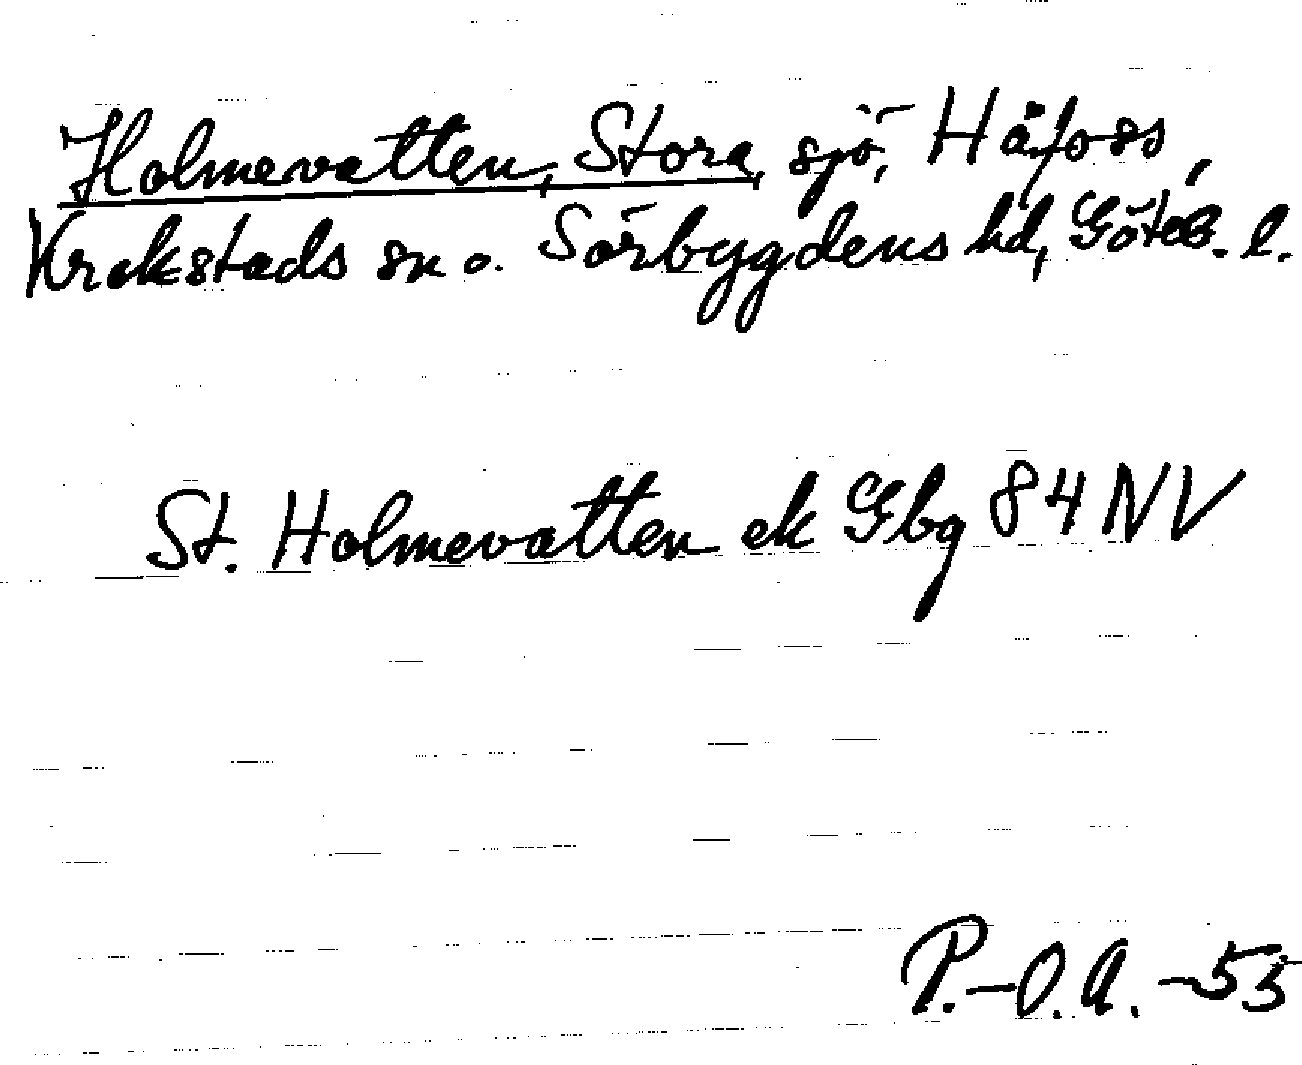 Holmevatten, Stora, sjö, Håfoss,
Krokstads sn o. Sörbygdens hd, Göteb. l.
St. Holmevatten ek Gbg 84 NV
P.-O.A. -55